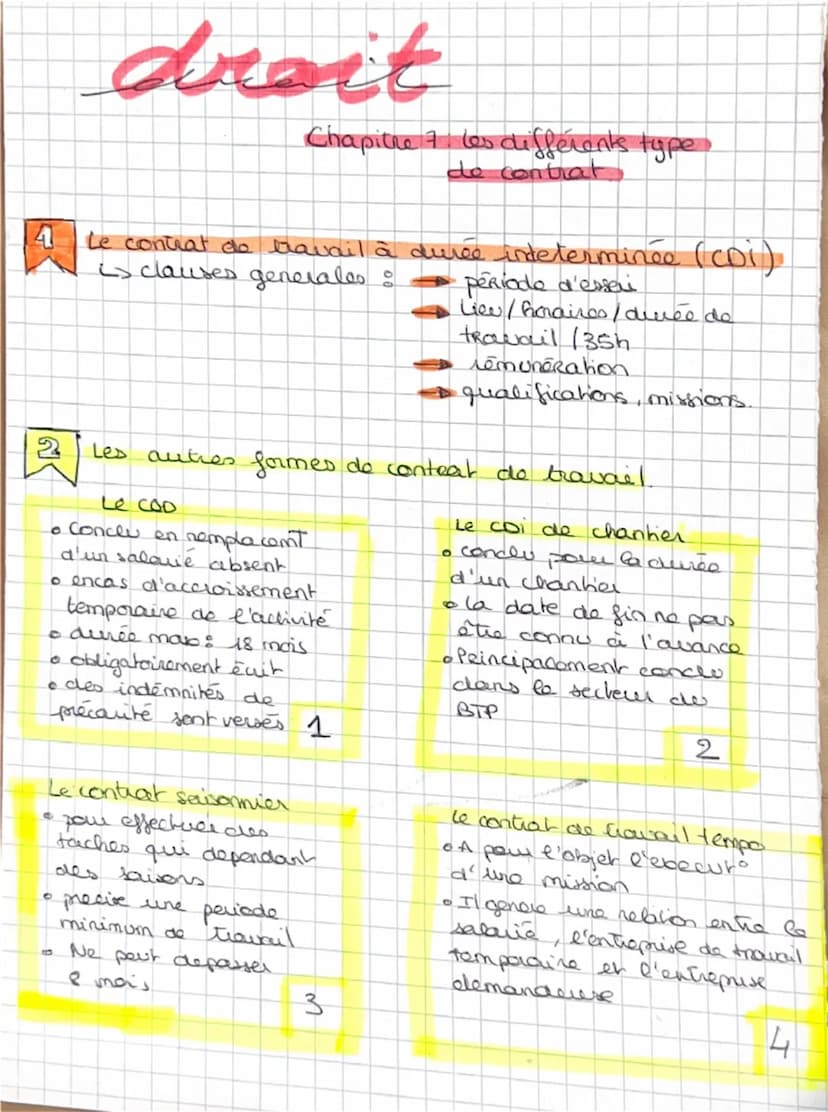 droit
Chapitre 7: les différents type
de contrat
1 Le contrat de travail à durée indeterminée (CDi)
↳ clauses generales : → période d'essai
→ Lieu / horaires / durée de
travail / 35h
→ rémunération
→ qualifications, missions.
2 Les autres formes de contrat de travail.
Le CDD
• conclu en remplacemt
d'un salarié absent
• en cas d'accroissement
temporaire de l'activité
• durée max : 18 mois
• obligatoirement écrit
• des indémnités de
précarité sont versés
1
Le CDi de chantier
• conclu pour la durée
d'un chantier
• la date de fin ne pas
être connu à l'avance
• Principalement conclu
dans le secteur du
BTP
2
Le contrat saisonnier
• pour effectuer des
taches qui dependant
des saisons
• precise une periode
minimum de travail
• Ne peut depasser
8 mois
3
Le contrat de travail tempo
• A pour l'objet l'execut°
d'une mission
• Il génère une relation entre le
salarié, l'entreprise de travail
temporaire et l'entreprise
demandeuse
4